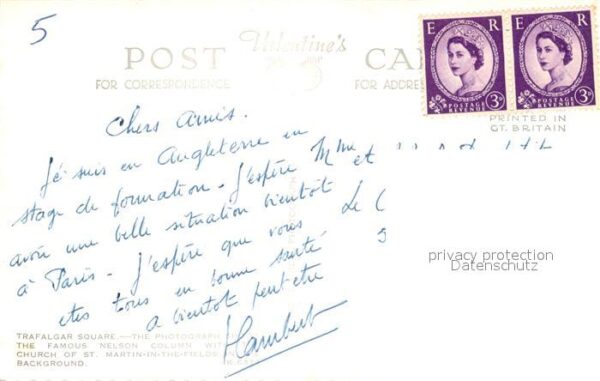 5
POST Valentine's CA
FOR CORRESPONDENCE FOR ADDRE
E R E R
3D 3D
POSTAGE REVENUE POSTAGE REVENUE
PRINTED IN
GT. BRITAIN
Chers Amis.
Je suis en Angleterre en
stage de formation. J'espère
avoir une belle situation bientôt
à Paris. J'espère que vous
etes tous en bonne santé
a bientot peut-etre
Lambert
Mme et
Le
privacy protection
Datenschutz
TRAFALGAR SQUARE.—THE PHOTOGRAPH
THE FAMOUS NELSON COLUMN WIT
CHURCH OF ST. MARTIN-IN-THE-FIELDS IN
BACKGROUND.